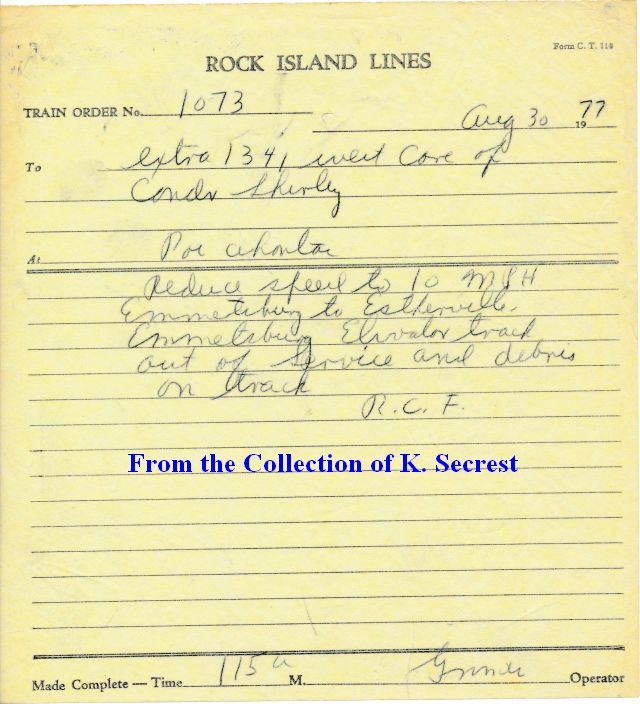 Form C. T. 110
ROCK ISLAND LINES
TRAIN ORDER No. 1073
Aug 30 1977
To extra 1341 west Care of
Condr Shirley
At Pocahontas
Reduce speed to 10 MPH
Emmetsburg to Estherville.
Emmetsburg Elevator track
out of service and debris
on track
R.C.F.
From the Collection of K. Secrest
Made Complete — Time 115 a M. Operator